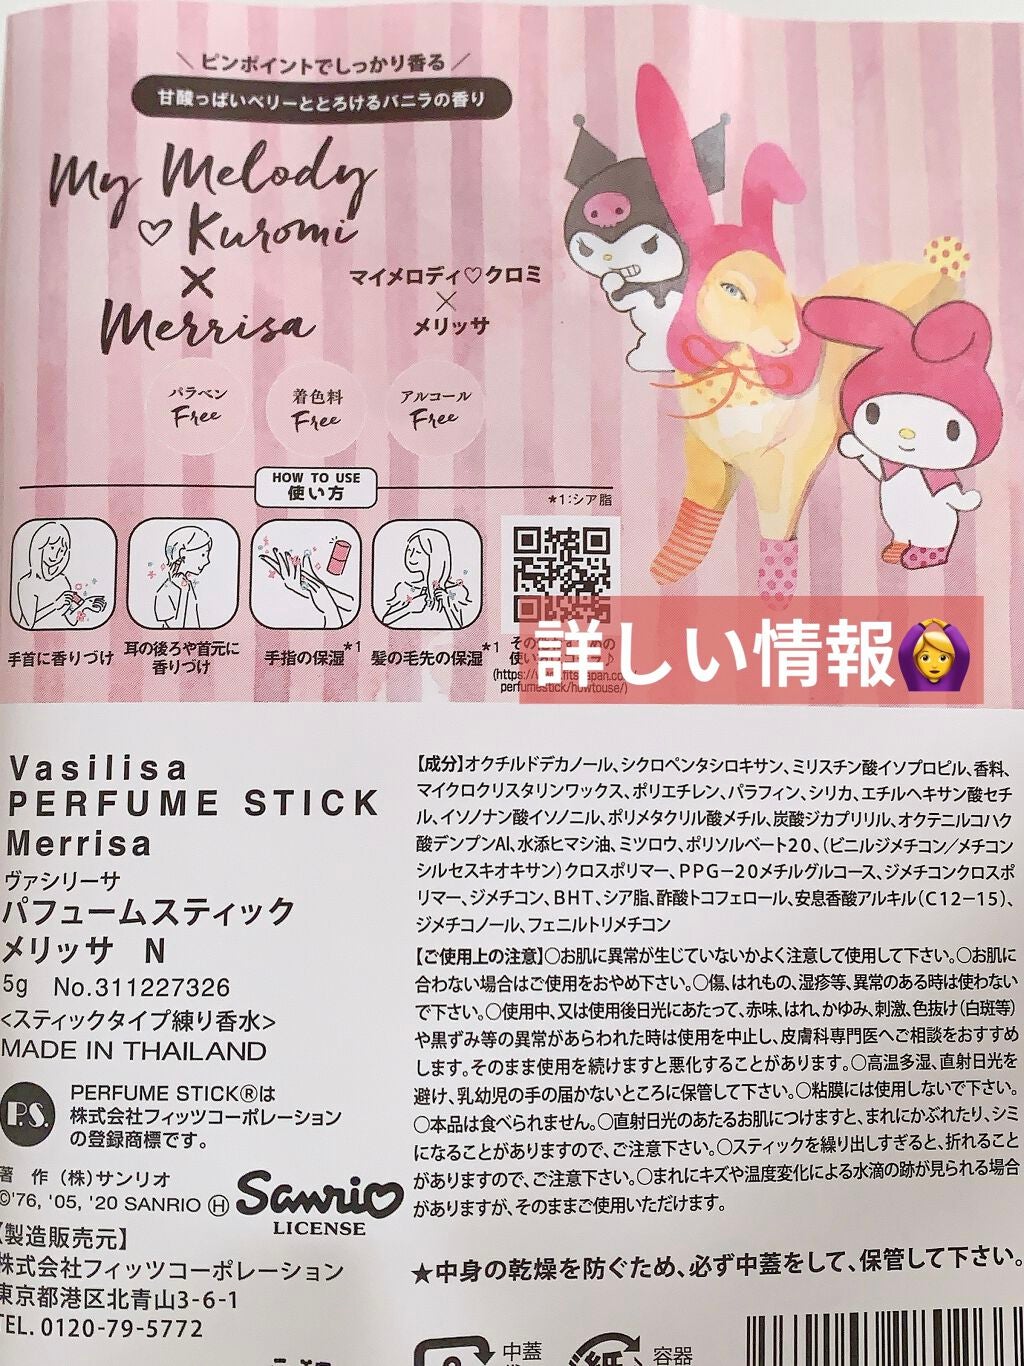 ＼ ピンポイントでしっかり香る ／
甘酸っぱいベリーととろけるバニラの香り
My Melody
♡ Kuromi
×
Merrisa
マイメロディ♡クロミ
×
メリッサ
パラベン
Free
着色料
Free
アルコール
Free
HOW TO USE
使い方
*1:シア脂
手首に香りづけ
耳の後ろや首元に
香りづけ
手指の保湿*1
髪の毛先の保湿*1
perfumestick/howtouse/)
詳しい情報🙆‍♀️
Vasilisa
PERFUME STICK
Merrisa
ヴァシリーサ
パフュームスティック
メリッサ N
5g No.311227326
<スティックタイプ練り香水>
MADE IN THAILAND
P.S.
PERFUME STICK®は
株式会社フィッツコーポレーション
の登録商標です。
著 作 (株)サンリオ
©'76, '05, '20 SANRIO Ⓗ
Sanrio
LICENSE
【製造販売元】
株式会社フィッツコーポレーション
東京都港区北青山3-6-1
TEL. 0120-79-5772
【成分】オクチルドデカノール、シクロペンタシロキサン、ミリスチン酸イソプロピル、香料、
マイクロクリスタリンワックス、ポリエチレン、パラフィン、シリカ、エチルヘキサン酸セチ
ル、イソノナン酸イソノニル、ポリメタクリル酸メチル、炭酸ジカプリリル、オクテニルコハク
酸デンプンAl、水添ヒマシ油、ミツロウ、ポリソルベート20、(ビニルジメチコン/メチコン
シルセスキオキサン)クロスポリマー、PPG-20メチルグルコース、ジメチコンクロスポ
リマー、ジメチコン、BHT、シア脂、酢酸トコフェロール、安息香酸アルキル(C12-15)、
ジメチコノール、フェニルトリメチコン
【ご使用上の注意】○お肌に異常が生じていないかよく注意して使用して下さい。○お肌に
合わない場合はご使用をおやめ下さい。○傷、はれもの、湿疹等、異常のある時は使わない
で下さい。○使用中、又は使用後日光にあたって、赤味、はれ、かゆみ、刺激、色抜け(白斑等)
や黒ずみ等の異常があらわれた時は使用を中止し、皮膚科専門医へご相談をおすすめ
します。そのまま使用を続けますと悪化することがあります。○高温多湿、直射日光を
避け、乳幼児の手の届かないところに保管して下さい。○粘膜には使用しないで下さい。
○本品は食べられません。○直射日光のあたるお肌につけますと、まれにかぶれたり、シミ
になることがありますので、ご注意下さい。○スティックを繰り出しすぎると、折れること
がありますので、ご注意下さい。○まれにキズや温度変化による水滴の跡が見られる場合
がありますが、そのままご使用いただけます。
★中身の乾燥を防ぐため、必ず中蓋をして、保管して下さい。
中蓋
紙
容器